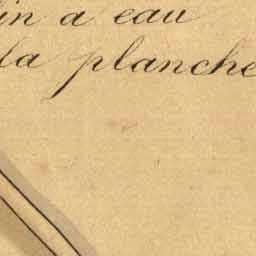 lin a eau
la planche